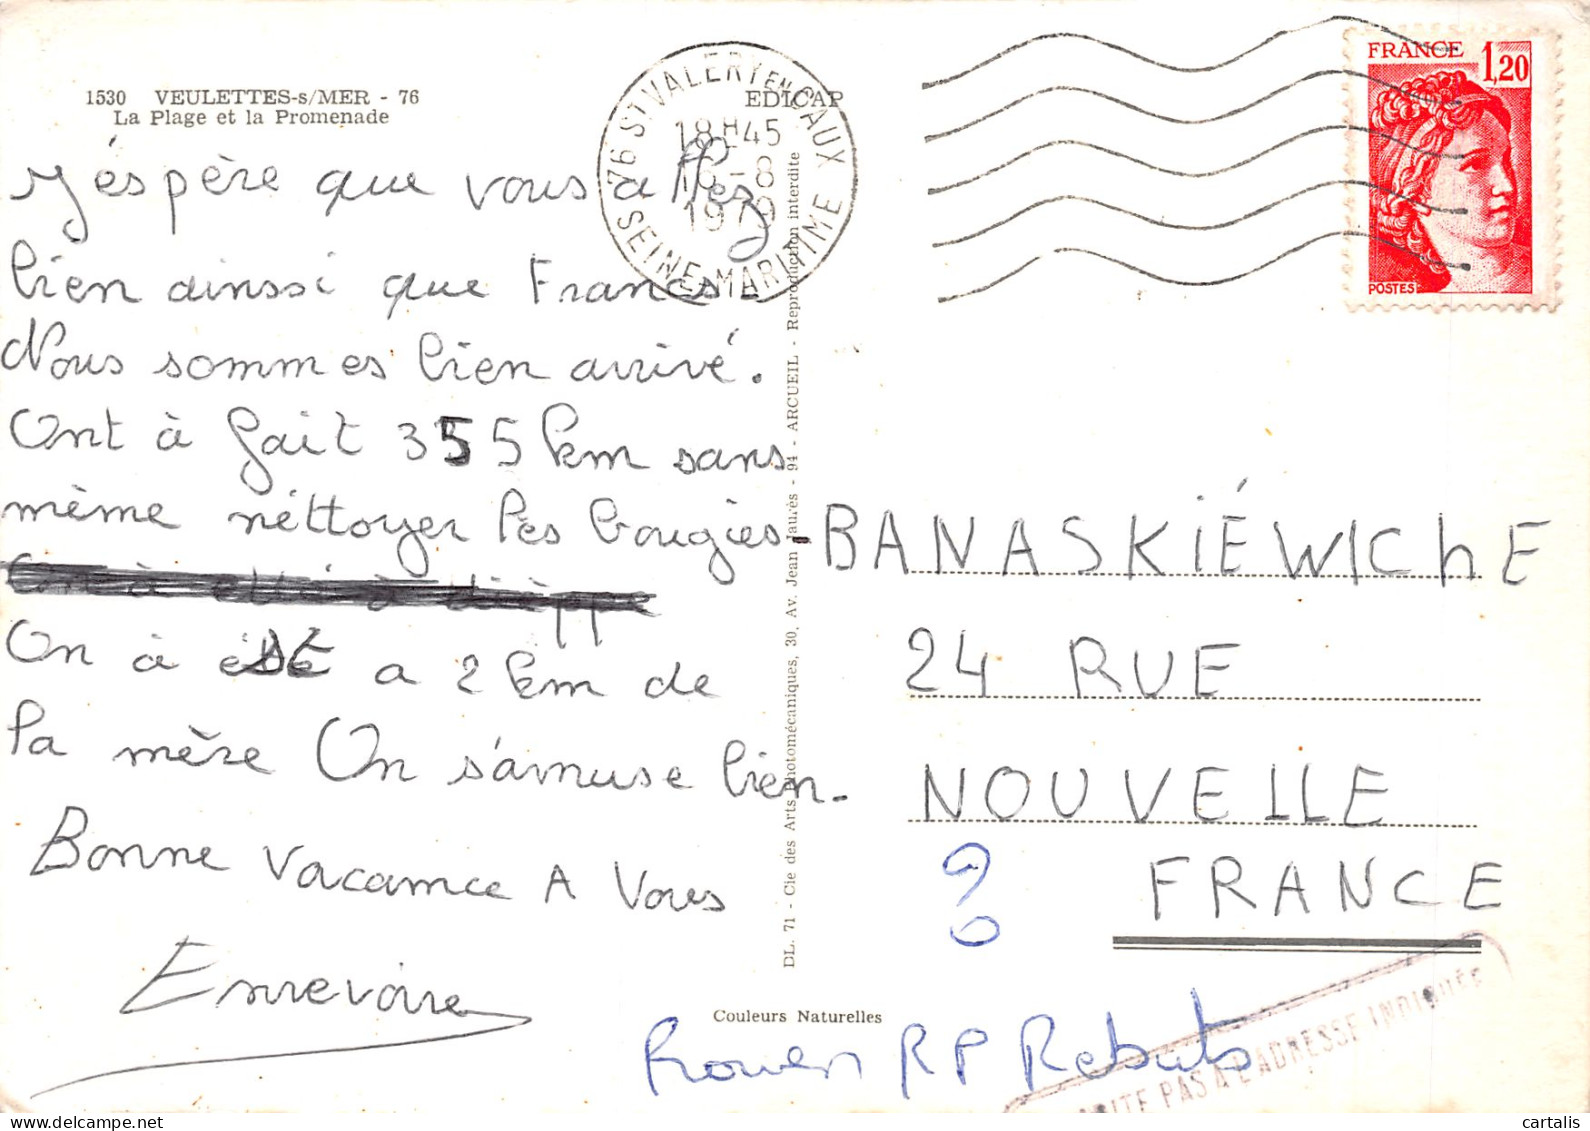 1530 VEULETTES-s/MER - 76
La Plage et la Promenade
EDICAP
76 ST VALERY EN CAUX
18H45
18-8
1979
SEINE-MARITIME
FRANCE
1,20
POSTES
J'éspère que vous allez
bien ainssi que Francis.
Nous sommes bien arrivé.
Ont à fait 355 km sans
même néttoyer les bougies.
On à été a 2 km de
la mère On s'amuse bien.
Bonne Vacamce A Vous
Enrevoire
DL. 71 - Cie des Arts Photomécaniques, 30, Av. Jean Jaurès - 94 - ARCUEIL - Reproduction interdite
BANASKIÉWIChE
24 RUE
NOUVELLE
?
FRANCE
Couleurs Naturelles
Rouen RP Rebuts
PAS A L'ADRESSE INDIQUÉE
cartalis